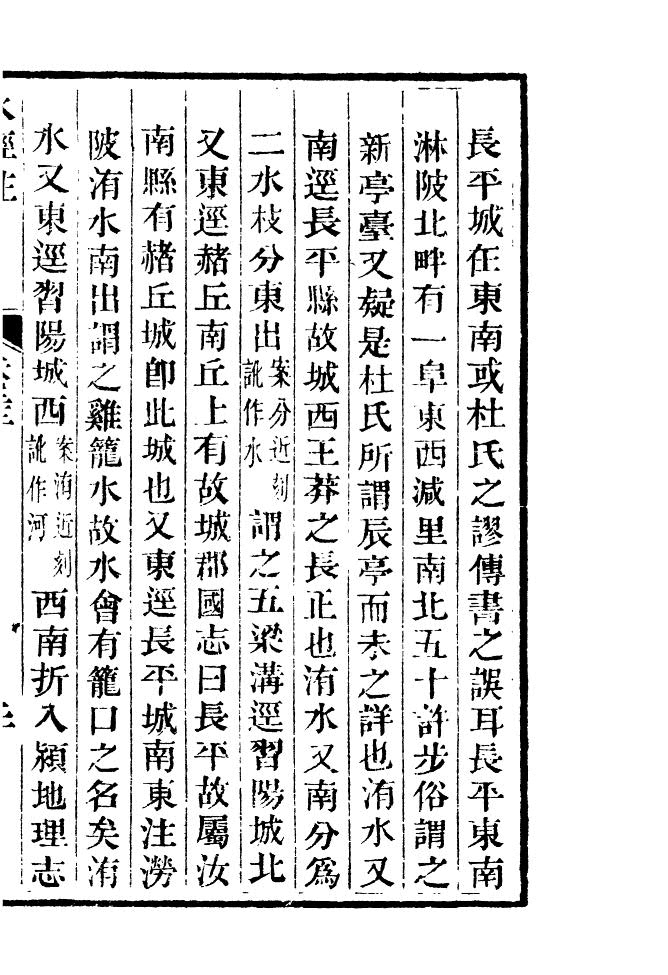 長平城在東南或杜氏之謬傳書之誤耳長平東南
淋陂北畔有一阜東西減里南北五十許步俗謂之
新亭臺又疑是杜氏所謂辰亭而未之詳也洧水又
南逕長平縣故城西王莽之長正也洧水又南分爲
二水枝分東出案分近刻訛作水謂之五梁溝逕習陽城北
又東逕赭丘南丘上有故城郡國志曰長平故屬汝
南縣有赭丘城卽此城也又東逕長平城南東注澇
陂洧水南出謂之雞籠水故水會有籠口之名矣洧
水又東逕習陽城西案洧近刻訛作河西南折入潁地理志
水經注